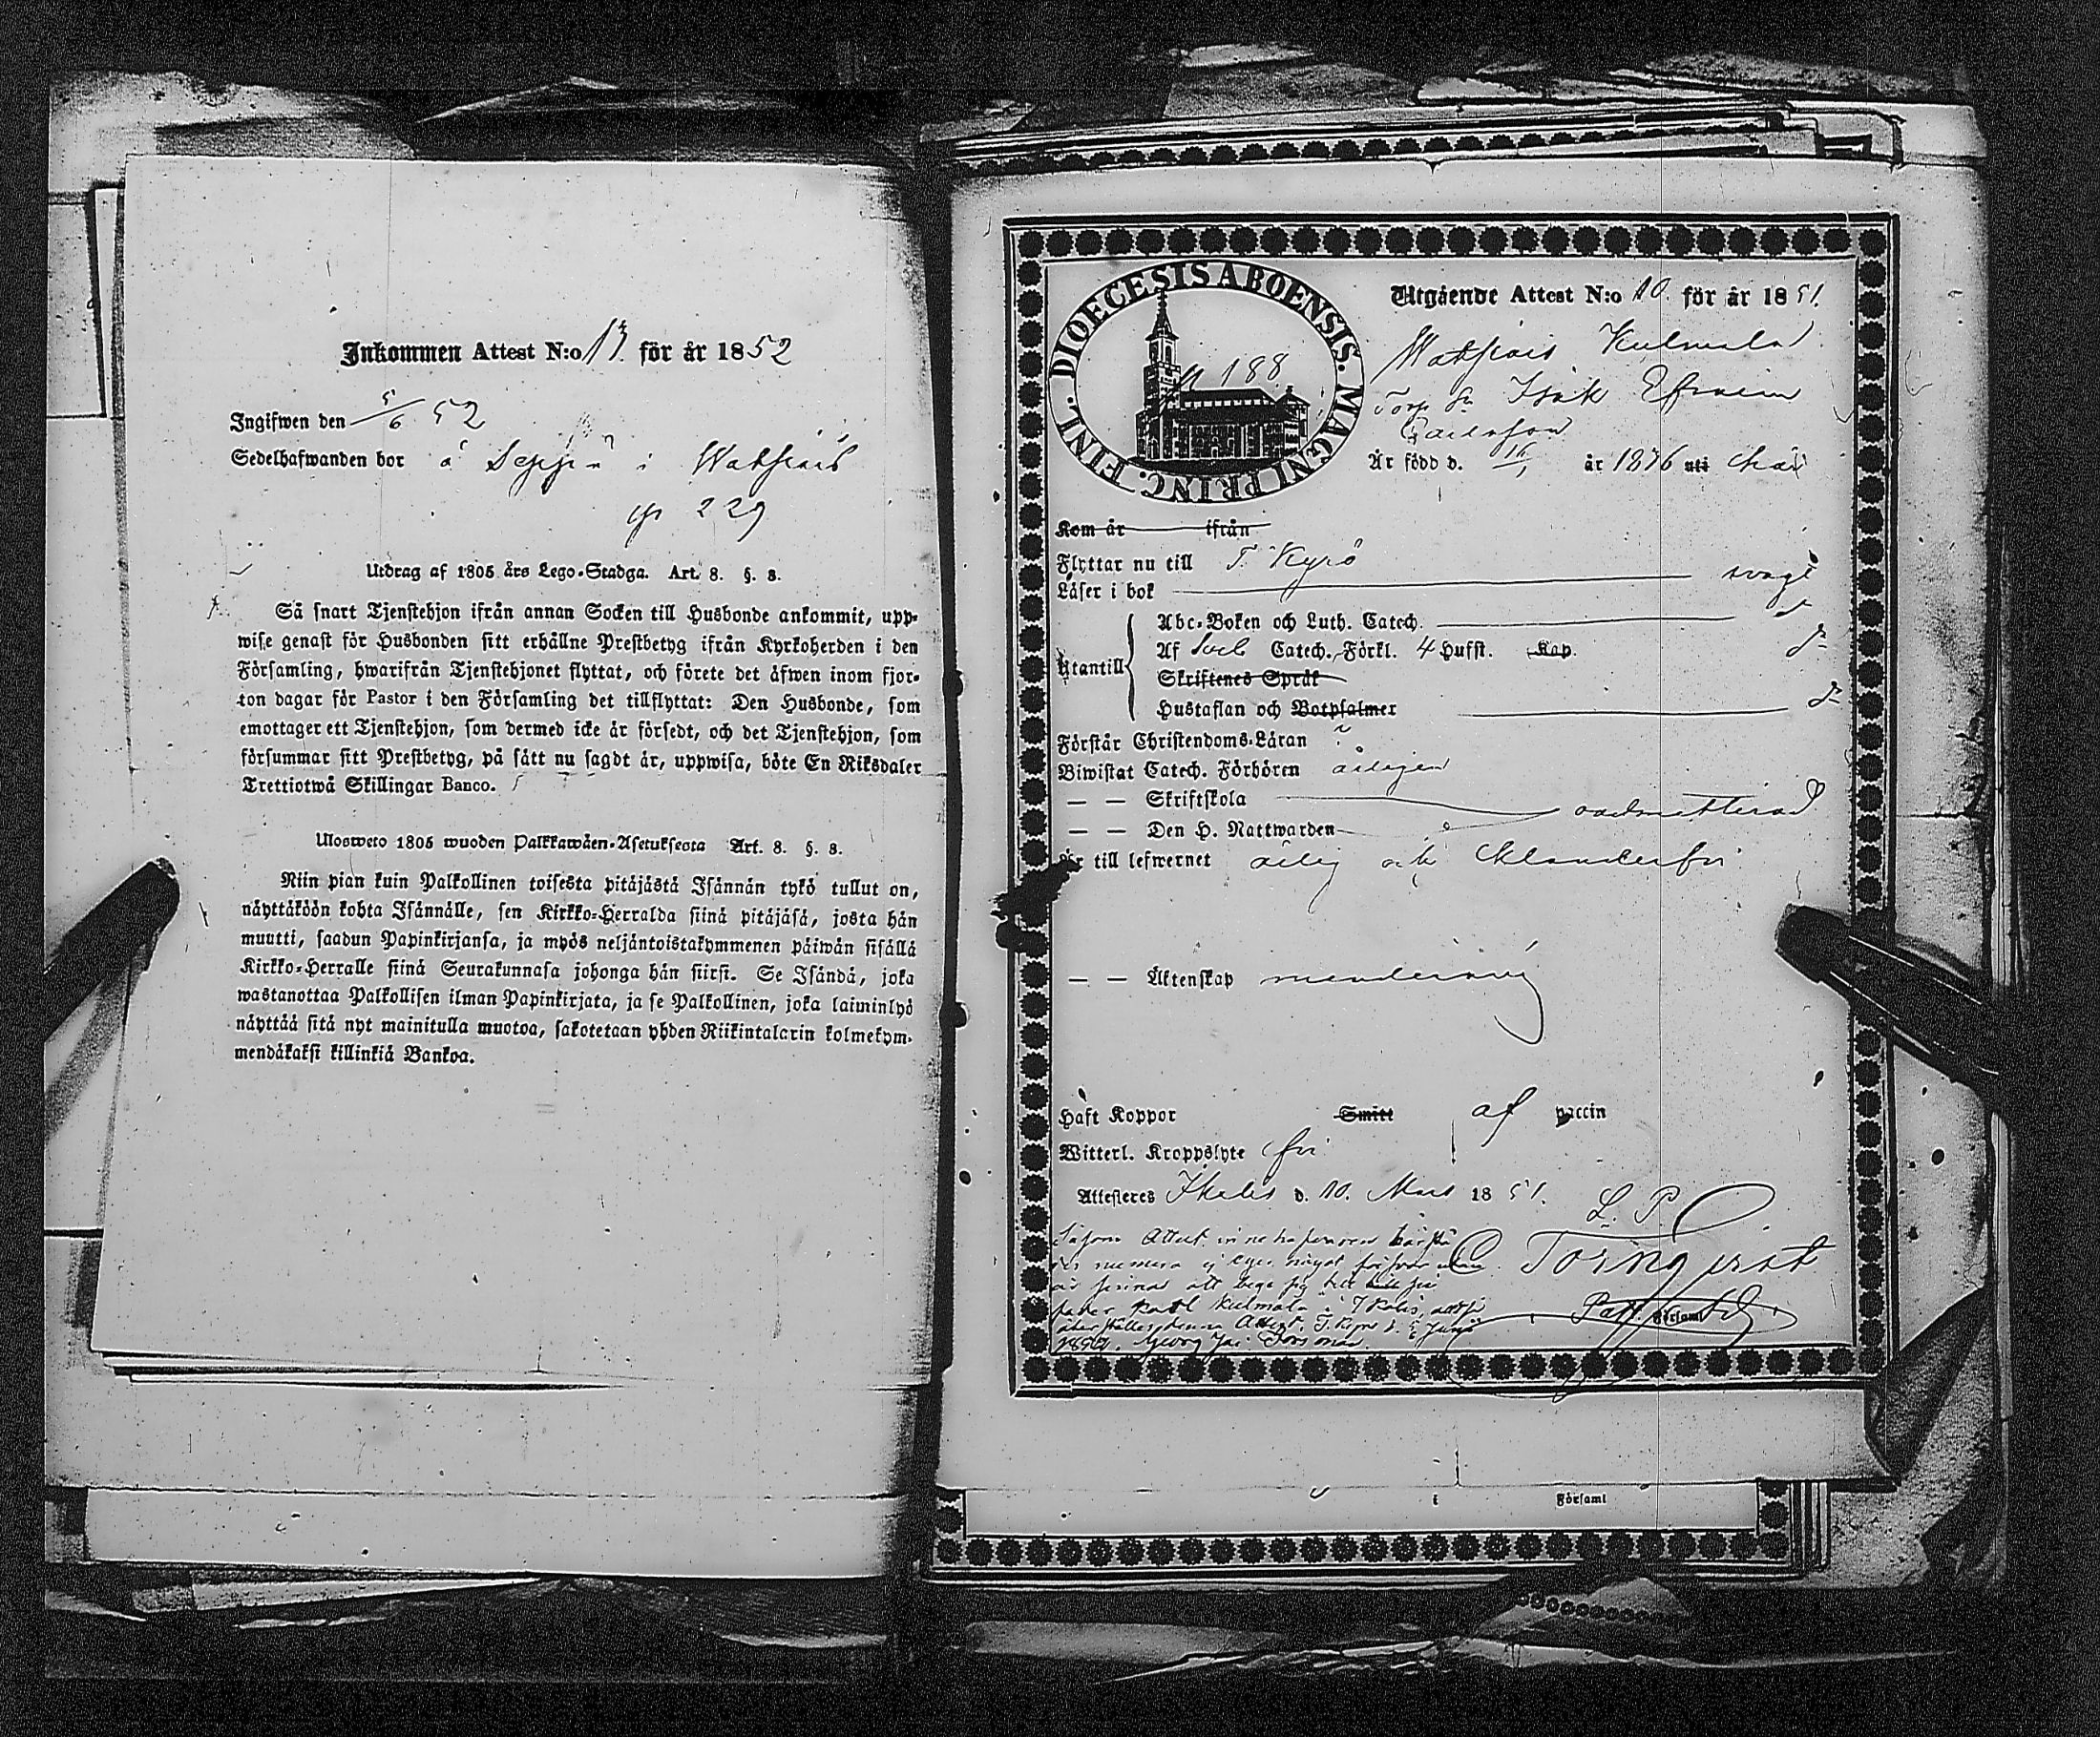 Inkommen Attest N:o 13. för år 1852
Ingifwen den 5/6 52
Sedelhafwanden bor å Seppä i Watsiais
p 229
Utdrag af 1805 års Lego-Stadga. Art. 8. §. 8.
Så snart Tjenstehjon ifrån annan Socken till Husbonde ankommit, upp-
wise genast för Husbonden sitt erhållne Prestbetyg ifrån Kyrkoherden i den
Församling, hwarifrån Tjenstehjonet flyttat, och förete det äfwen inom fjor-
ton dagar för Pastor i den Församling det tillflyttat: Den Husbonde, som
emottager ett Tjenstehjon, som dermed icke är försedt, och det Tjenstehjon, som
försummar sitt Prestbetyg, på sätt nu sagdt är, uppwisa, böte En Riksdaler
Trettiotwå Skillingar Banco.
Ulosweto 1805 wuoden Palkkawäen-Asetuksesta Art. 8. §. 8.
Niin pian kuin Palkollinen toisesta pitäjästä Isännän tykö tullut on,
näyttäköön kohta Isännälle, sen Kirkko-Herralda siinä pitäjäsä, josta hän
muutti, saadun Papinkirjansa, ja myös neljäntoistakymmenen päiwän sisällä
Kirkko-Herralle siinä Seurakunnasa johonga hän siirsi. Se Isändä, joka
wastanottaa Palkollisen ilman Papinkirjata, ja se Palkollinen, joka laiminlyö
näyttää sitä nyt mainitulla muotoa, sakotetaan yhden Riikintalarin kolmekym-
mendäkaksi killinkiä Bankoa.
DIOECESIS ABOENSIS. MAGNI PRINC. FINL.
p 188
Utgående Attest N:o 10. för år 1851.
Watsiais Kulmala
Torp. Sn Isak Efraim
Carlsson
Är född d. 16/1 år 1836 uti här
Kom år ifrån
Flyttar nu till T. Kyrö
Läser i bok svagt
Utantill
Abc-Boken och Luth. Catech. d
Af Sveb Catech. Förkl. 4 Hufst. Kap. d:o
Skriftenes Språk
Hustaflan och Botpsalmer d:o
Förstår Christendoms-Läran
Biwistat Catech. Förhören årligen
— — Skriftskola oadmitterad
— — Den H. Nattwarden
Är till lefwernet ärlig och klanderfri
— — Äktenskap minderårig
Haft Koppor Smitt af vaccin
Witterl. Kroppslyte fri
Attesteras Ikalis d. 10. Mars 1851.
L. P.
C. Törnqvist
Såsom Attest innehafvaren
fader Karl Kulmala i Ikalis,
denna Attest. T. Kyrö d. 5 Juni
1852. Georg Jac. Forsman.
Församl
i Församl